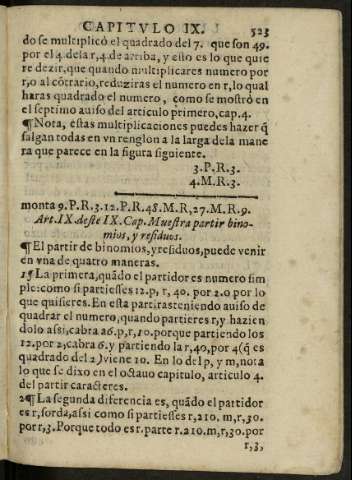 CAPITVLO IX. 523
do se multiplicò el quadrado del 7. que son 49.
por el 4. de la r, 4. de arriba, y esto es lo que quie
re dezir, que quando multiplicares numero por
r, o al cõtrario, reduziras el numero en r, lo qual
haras quadrado el numero, como se mostrò en
el septimo auiso del articulo primero, cap. 4.
¶ Nota, estas multiplicaciones puedes hazer q̃
salgan todas en vn renglon a la larga de la mane
ra que parece en la figura siguiente.
3. P. R. 3.
4. M. R. 3.
monta 9. P. R. 3. 12. P. R. 48. M. R, 27. M. R. 9.
Art. IX. deste IX. Cap. Muestra partir bino-
mios, y residuos.
¶ El partir de binomios, y residuos, puede venir
en vna de quatro maneras.
1 ¶ La primera, quãdo el partidor es numero sim
ple: como si partiesses 12. p, r, 40. por 2. o por lo
que quisieres. En esta partiras teniendo auiso de
quadrar el numero, quando partieres r, y hazien
dolo assi, cabra a 6. p, r, 10. porque partiendo los
12. por 2, cabra 6. y partiendo la r, 40, por 4 (q̃ es
quadrado del 2) viene 10. En lo del p, y m, nota
lo que se dixo en el octauo capitulo, articulo 4.
del partir caracteres.
2 ¶ La segunda diferencia es, quãdo el partidor
es r, sorda, assi como si partiesses r, 210. m, r, 30.
por r, 3. Porque todo es r. parte r. 210. m, r, 30. por
r, 3,